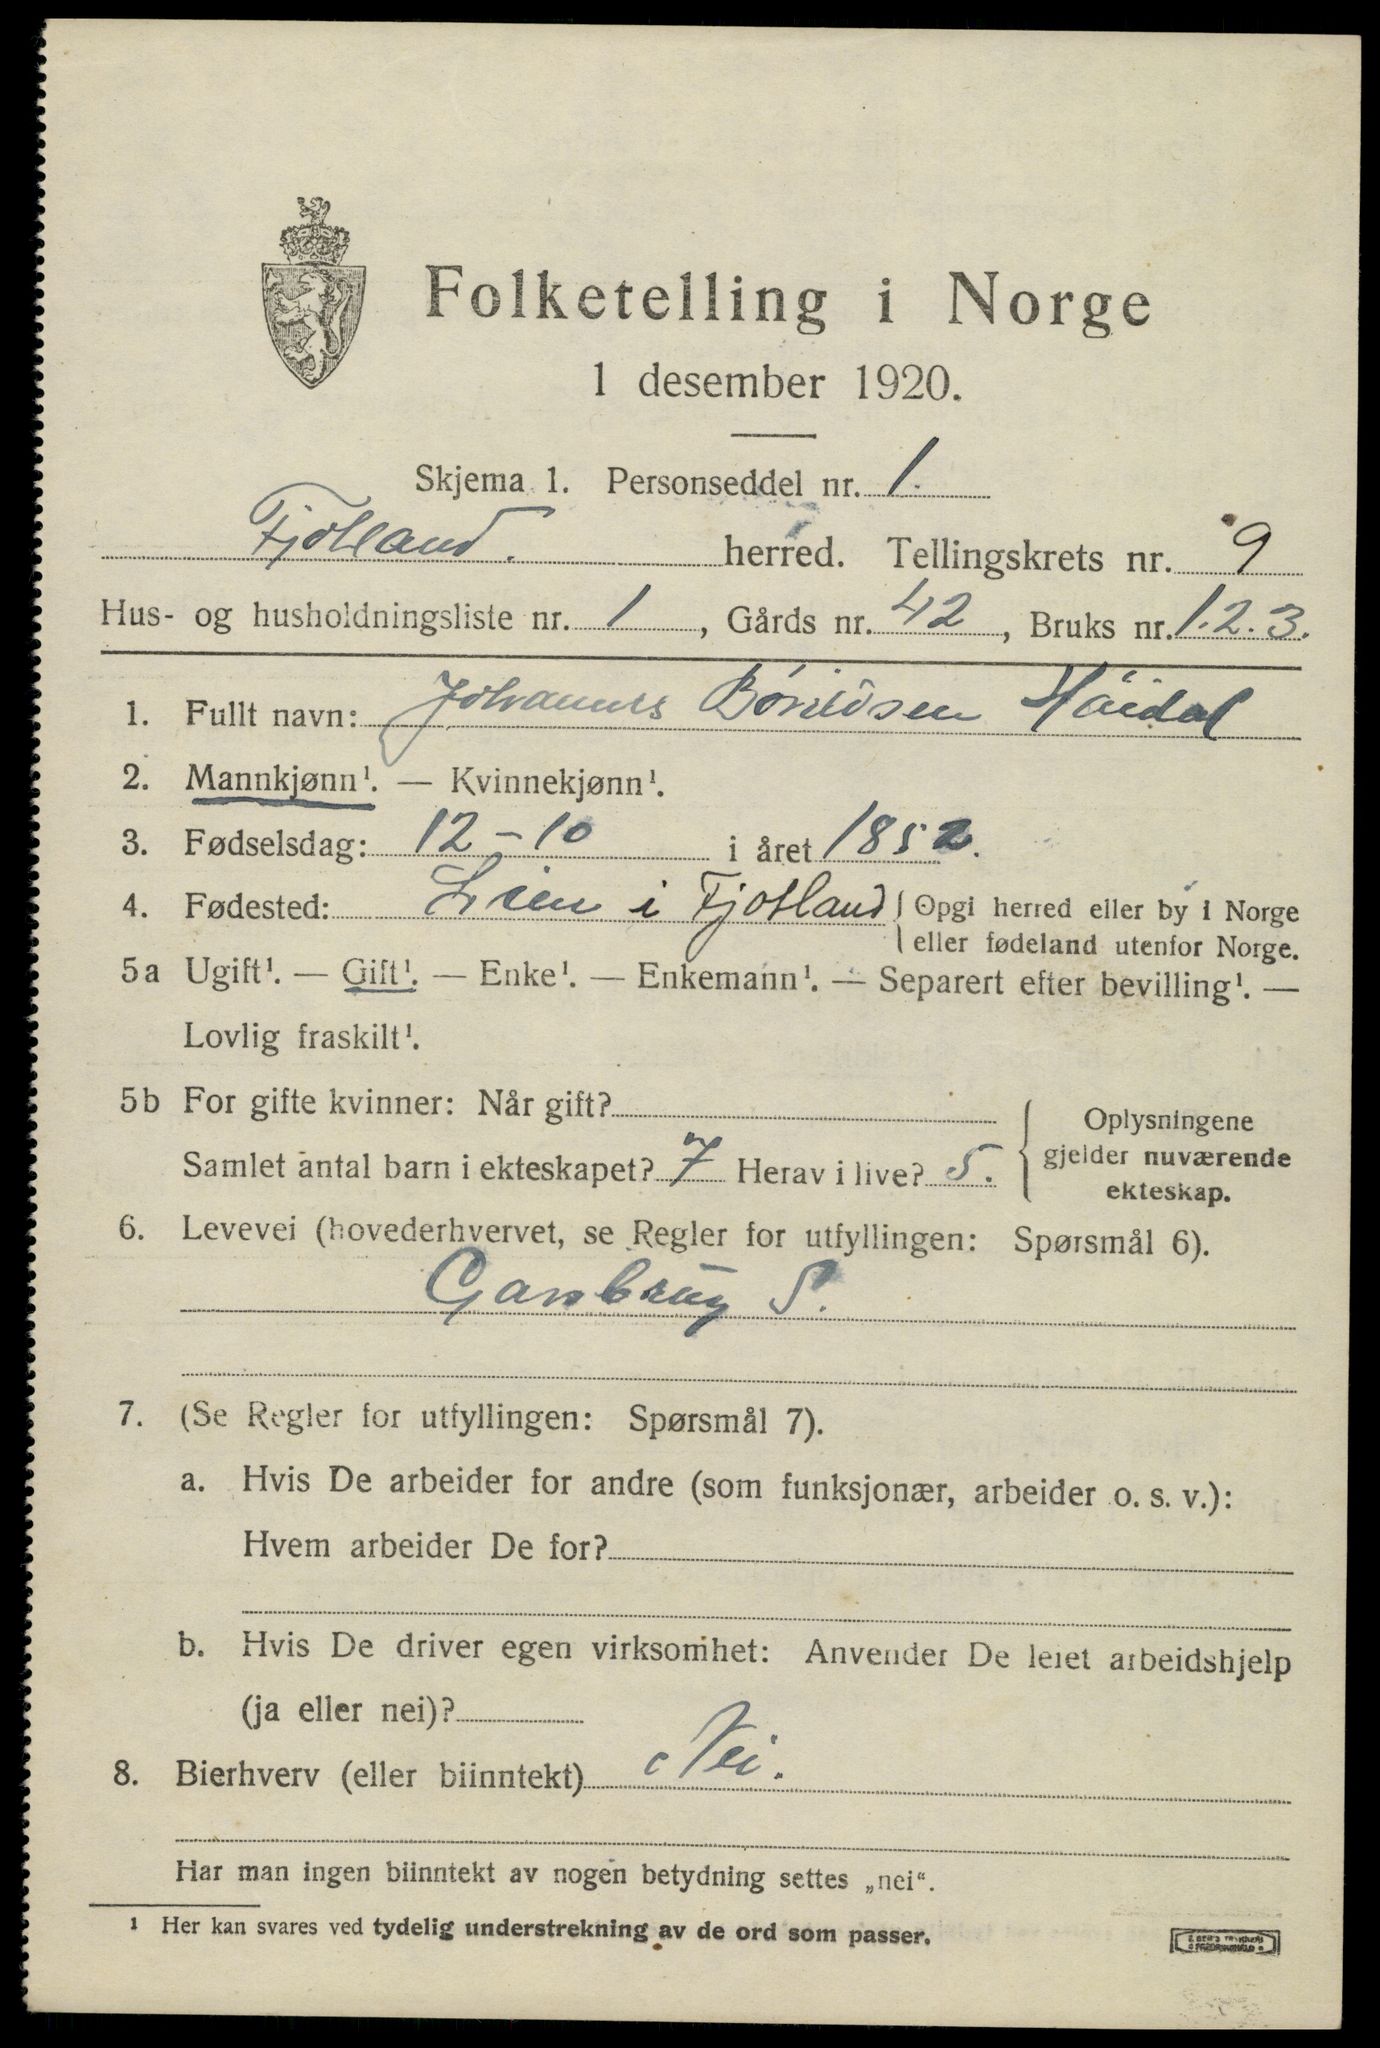 Folketelling i Norge
1 desember 1920.
Skjema 1. Personseddel nr. 1.
Fjotland. herred. Tellingskrets nr. 9
Hus- og husholdningsliste nr. 1, Gårds nr. 42, Bruks nr. 1.2.3.
1. Fullt navn: Johannes Høidal
2. Mannkjønn¹. — Kvinnekjønn¹.
3. Fødselsdag: 12-10 i året 1852.
4. Fødested: Lien i Fjotland { Opgi herred eller by i Norge
eller fødeland utenfor Norge.
5a Ugift¹. — Gift¹. — Enke¹. — Enkemann¹. — Separert efter bevilling¹. —
Lovlig fraskilt¹.
5b For gifte kvinner: Når gift?
Samlet antal barn i ekteskapet? 7 Herav i live? 5.
Oplysningene
gjelder nuværende
ekteskap.
6. Levevei (hovederhvervet, se Regler for utfyllingen: Spørsmål 6).
S.
7. (Se Regler for utfyllingen: Spørsmål 7).
a. Hvis De arbeider for andre (som funksjonær, arbeider o. s. v.):
Hvem arbeider De for?
b. Hvis De driver egen virksomhet: Anvender De leiet arbeidshjelp
(ja eller nei)?
8. Bierhverv (eller biinntekt) Nei.
Har man ingen biinntekt av nogen betydning settes „nei“.
¹ Her kan svares ved tydelig understrekning av de ord som passer.